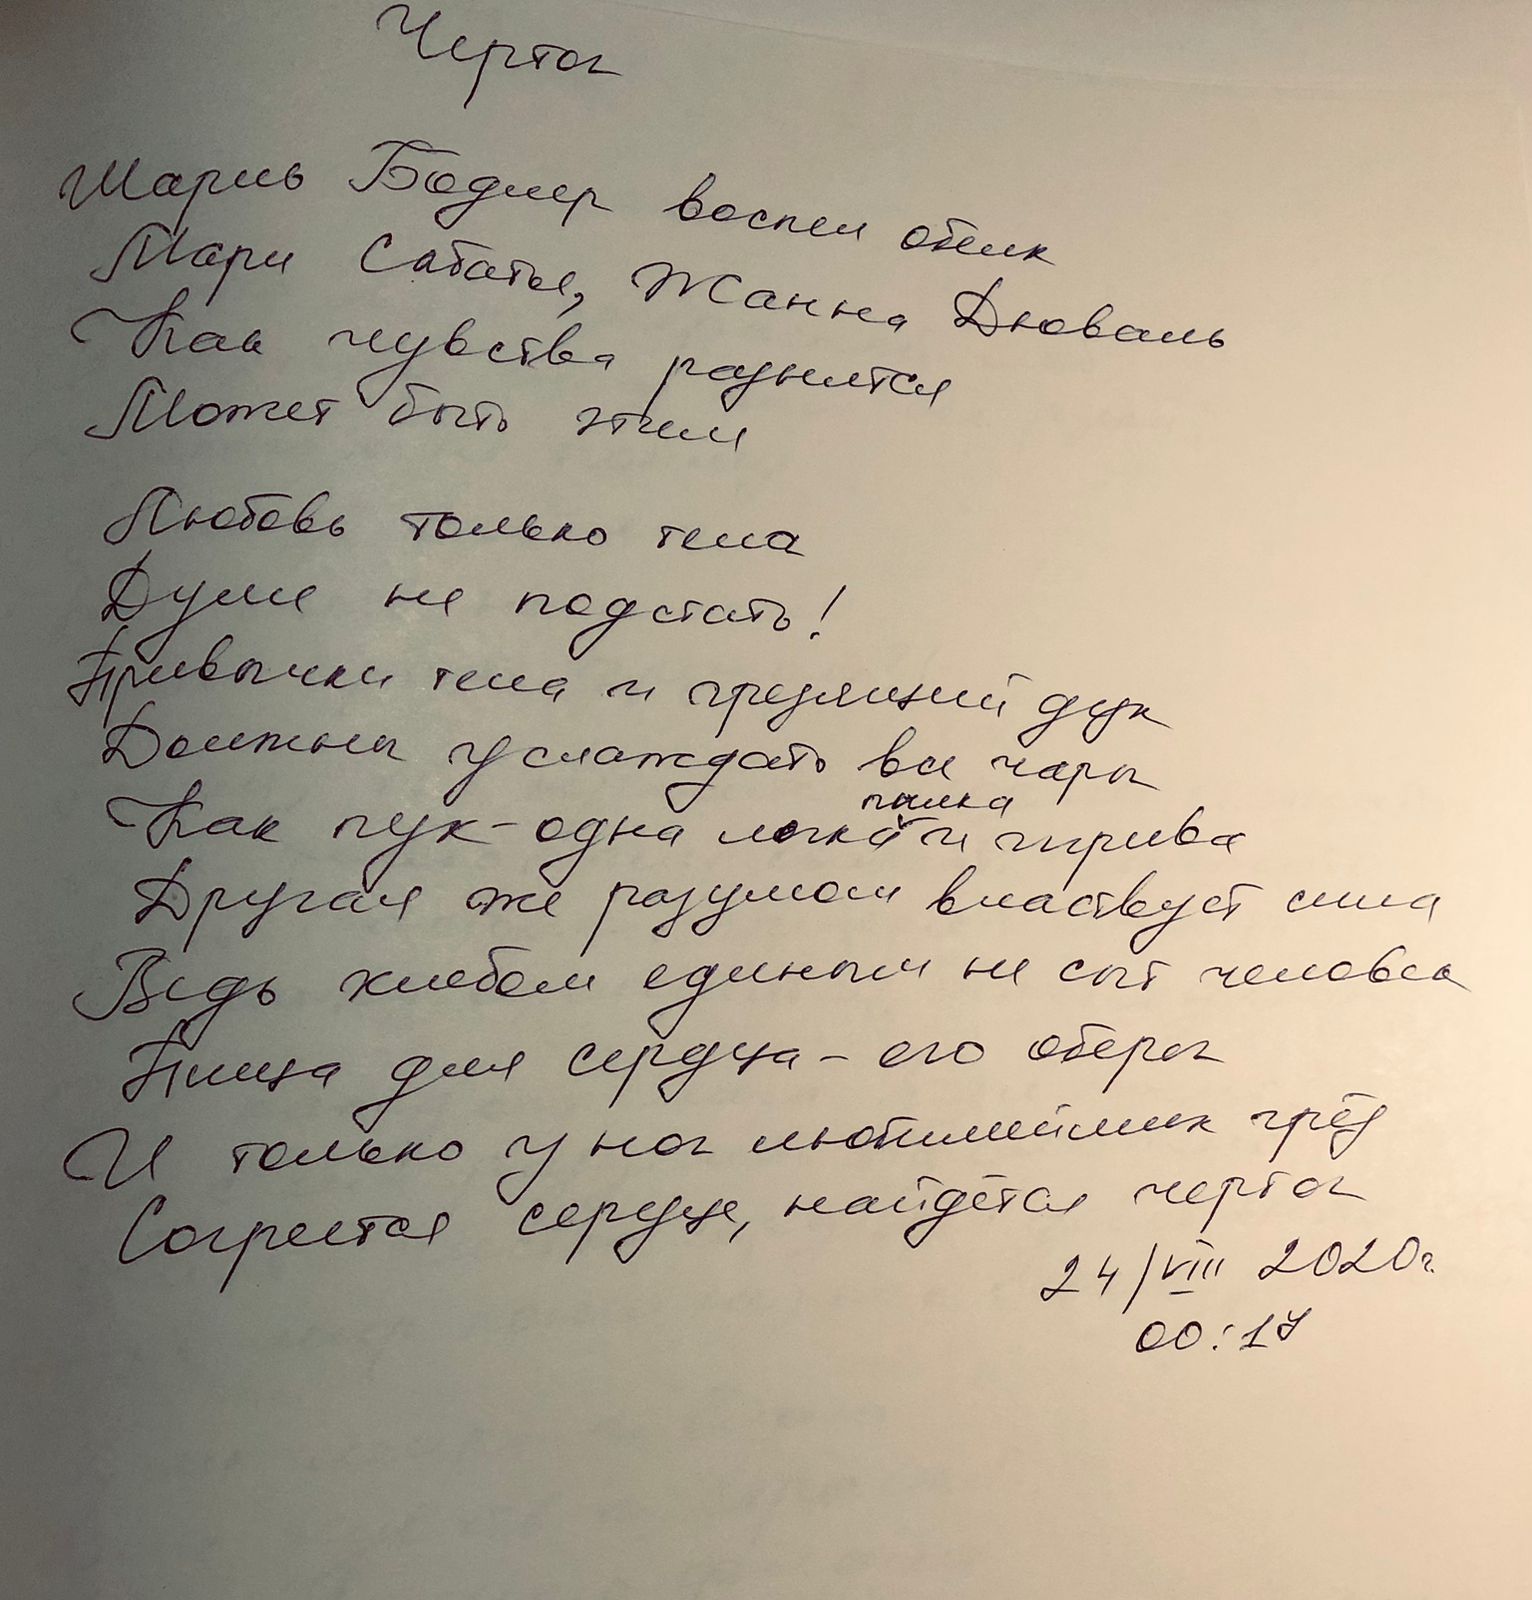 Чертог
Шарль Бодлер воспел облик
Мари Сабатье, Жанна Дюваль
Как чувства разнятся
Может быть этим
Любовь только тела
Душе не подстать!
Привычки тела и грезящий дух
Должны услаждать все чары
Как пух - одна легка и игрива
пылка
Другая же разумом властвует сила
Ведь хлебом единым не сыт человек
Пища для сердца - его оберег
И только у ног грёз
Согреется сердце, найдётся чертог
24/VIII 2020г.
00:17